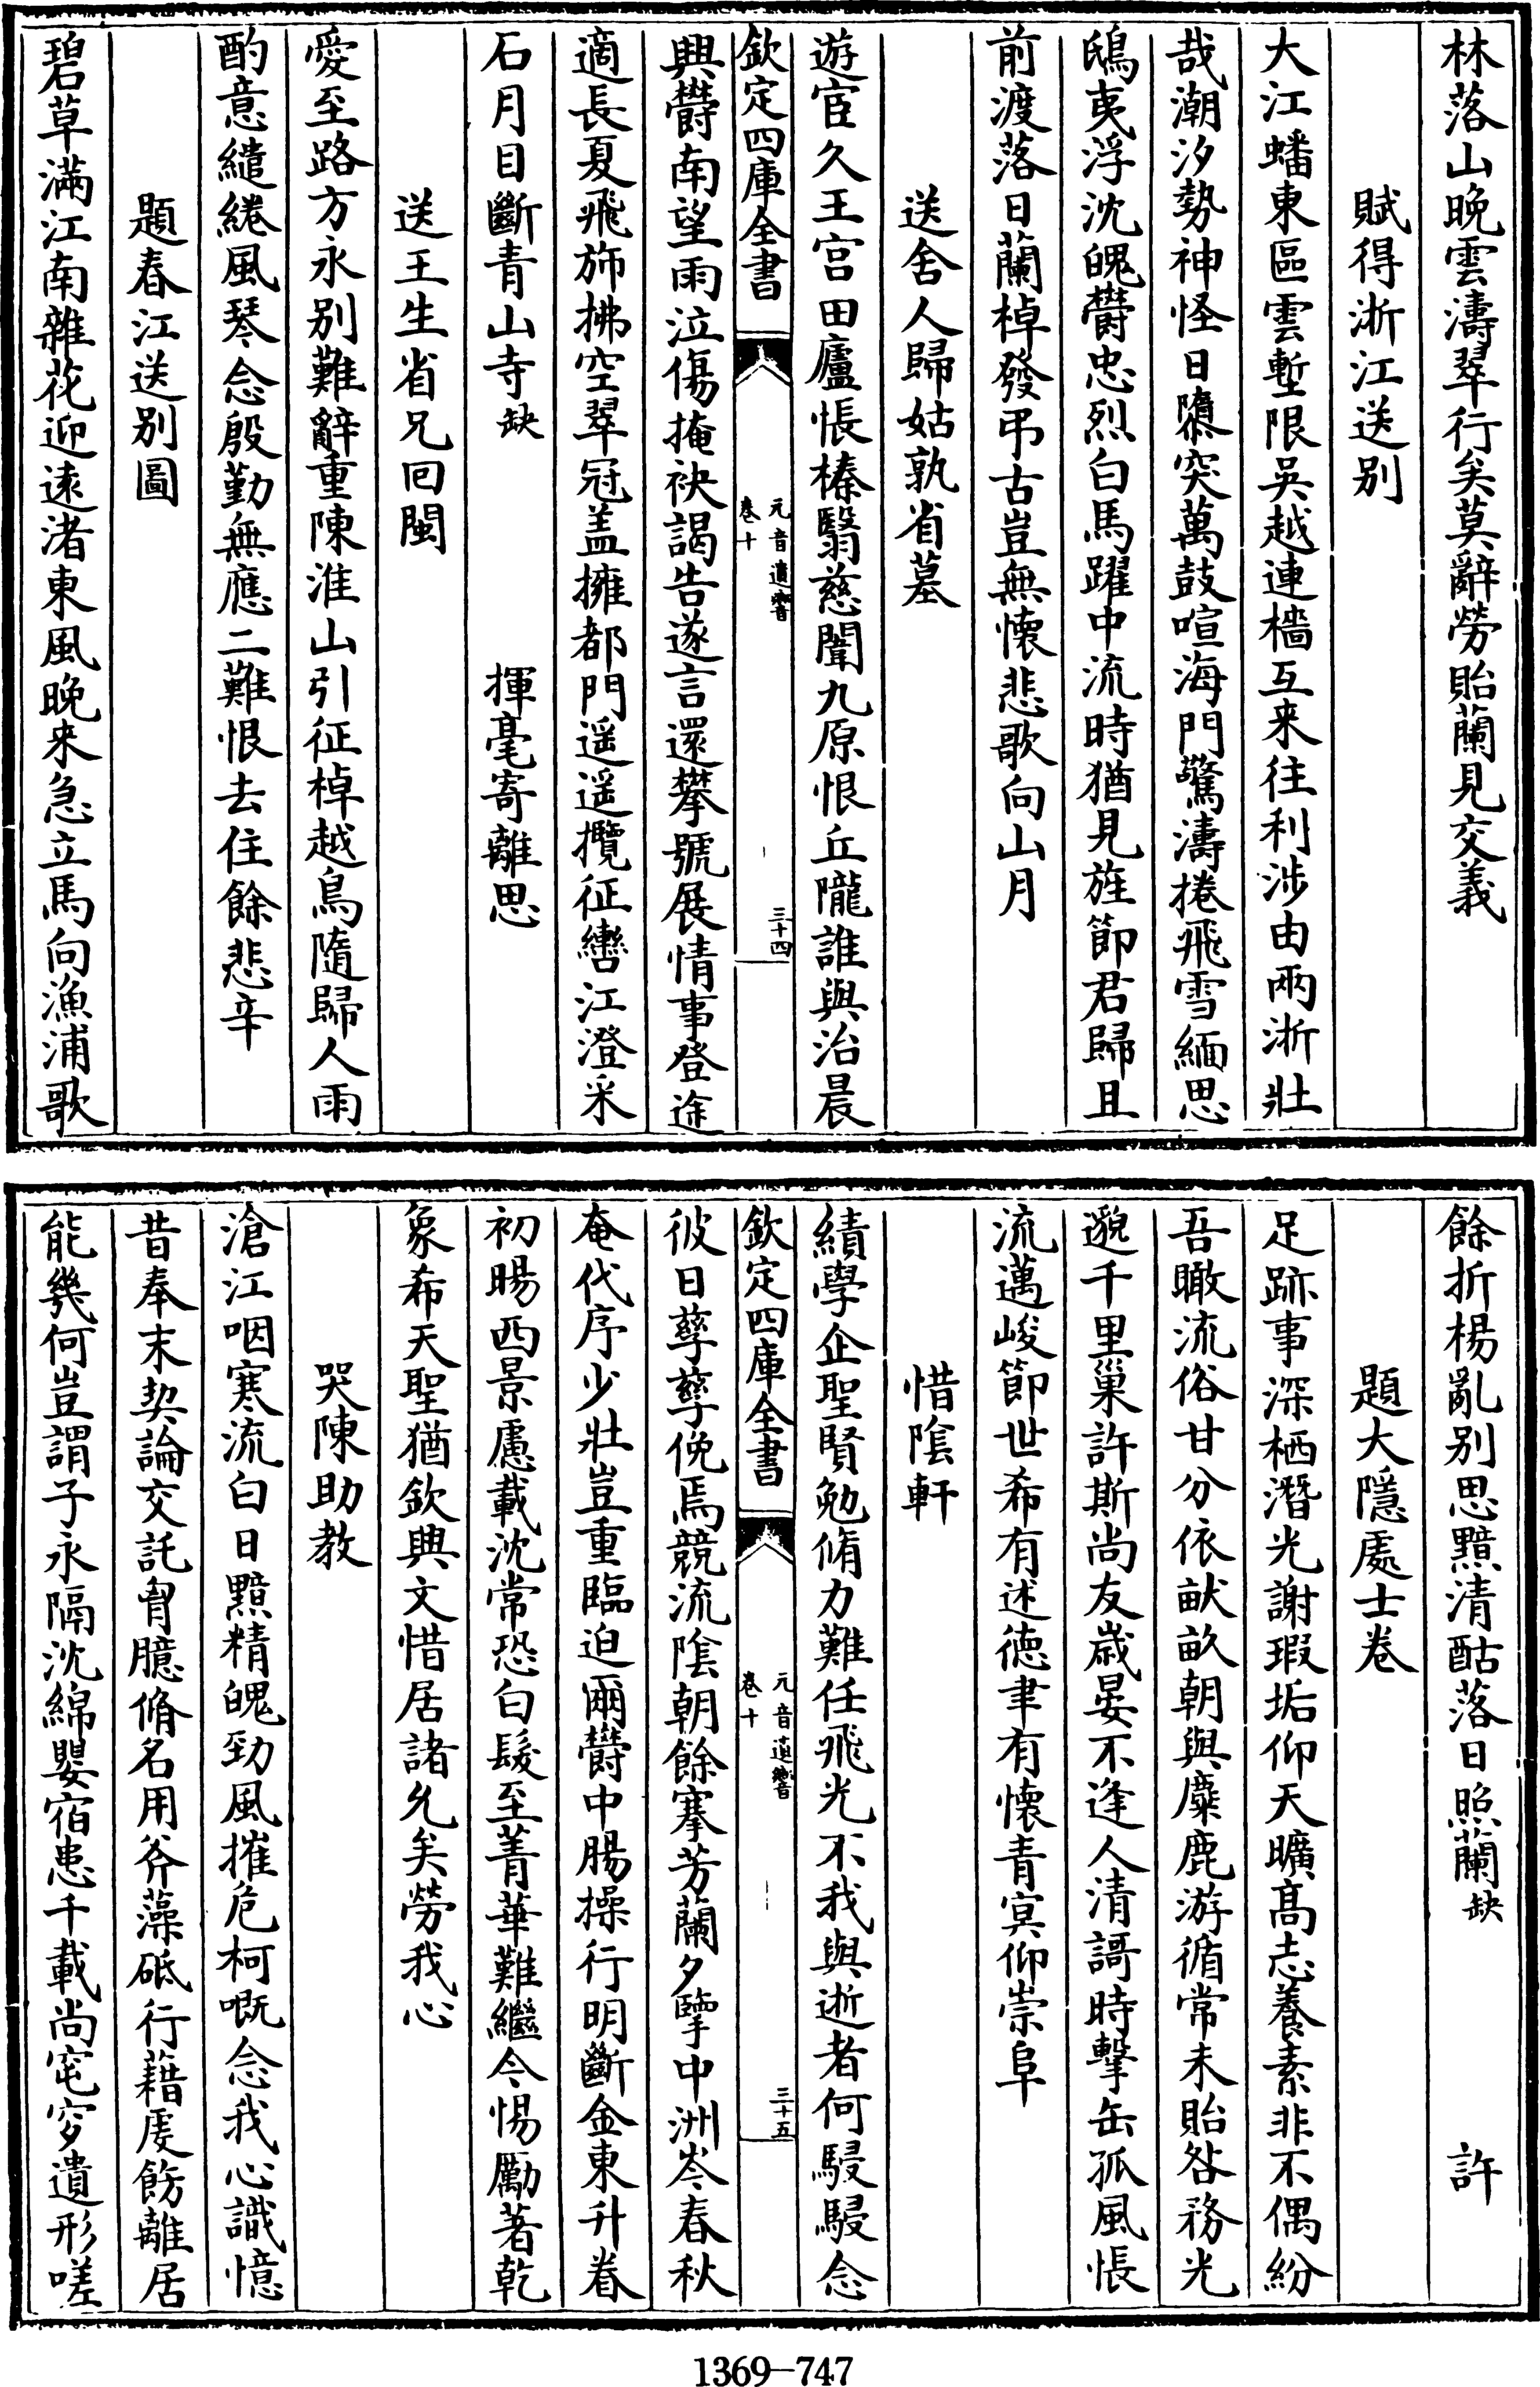 林落山晚雲濤翠行矣莫辭勞貽蘭見交義
賦得浙江送別
大江蟠東區雲塹限吳越連檣互来往利涉由兩浙壯
哉潮汐勢神怪日隳突萬鼓喧海門驚濤捲飛雪緬思
鴟夷浮沈魄鬱忠烈白馬躍中流時猶見旌節君歸且
前渡落日蘭棹發弔古豈無懷悲歌向山月
送舍人歸姑孰省墓
遊宦久王宮田廬悵榛翳慈闈九原恨丘隴誰與治晨
欽定四庫全書
元音遺響
卷十
三十四
興鬱南望雨泣傷掩袂謁告遂言還攀號展情事登途
適長夏飛斾拂空翠冠盖擁都門遥遥攬征轡江澄采
石月目斷青山寺缺 揮毫寄離思
送王生省兄回閩
愛至路方永别難辭重陳淮山引征棹越鳥隨歸人雨
酌意繾綣風琴念殷勤無應二難恨去住餘悲辛
題春江送别圖
碧草滿江南雜花迎遠渚東風晚来急立馬向漁浦歌
餘折楊亂别思黯清酤落日照蘭缺 許
題大隱處士卷
足跡事深栖潛光謝瑕垢仰天曠高志養素非不偶紛
吾瞰流俗甘分依畎畝朝與麋鹿游循常未貽咎務光
邈千里巢許斯尚友歲晏不逢人清謌時擊缶孤風悵
流邁峻節世希有述德聿有懷青㝠仰崇阜
惜隂軒
績學企聖賢勉脩力難任飛光不我與逝者何駸駸念
欽定四庫全書
元音遺響
卷十
三十五
彼日孳孳俛焉競流隂朝餘搴芳蘭夕擥中洲岑春秋
奄代序少壯豈重臨迫爾鬱中腸操行明斷金東升眷
初暘西景慮載沈常恐白髮至菁華難繼今惕勵著乾
象希天聖猶欽興文惜居諸允矣勞我心
哭陳助教
滄江咽寒流白日黯精魄勁風摧危柯嘅念我心識憶
昔奉末契論交託胷臆脩名用斧藻砥行藉廙飭離居
能幾何豈謂子永隔沈綿嬰宿患千載尚窀穸遺形嗟
1369-747